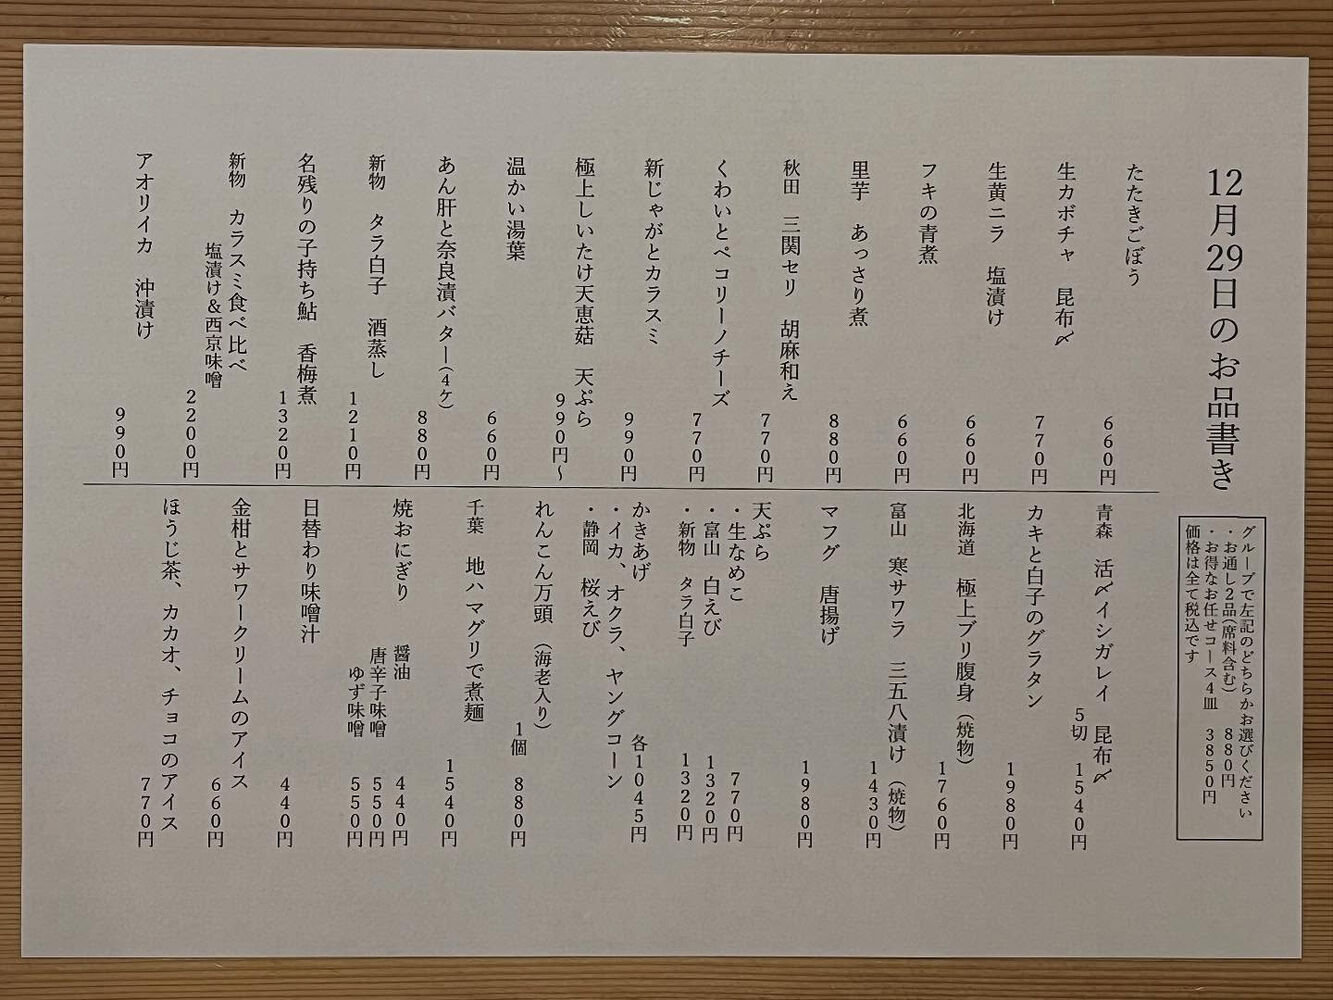 12月29日のお品書き
グループで左記のどちらかお選びください
・お通し2品(席料含む) 880円
・お得なお任せコース4皿 3850円
価格は全て税込です
たたきごぼう 660円
生カボチャ 昆布〆 770円
生黄ニラ 塩漬け 660円
フキの青煮 660円
里芋 あっさり煮 880円
秋田 三関セリ 胡麻和え 770円
くわいとペコリーノチーズ 770円
新じゃがとカラスミ 990円
極上しいたけ天恵菇 天ぷら 990円～
温かい湯葉 660円
あん肝と奈良漬バター(4ケ) 880円
新物 タラ白子 酒蒸し 1210円
名残りの子持ち鮎 香梅煮 1320円
新物 カラスミ食べ比べ
塩漬け＆西京味噌 2200円
アオリイカ 沖漬け 990円
青森 活〆イシガレイ 昆布〆
5切 1540円
カキと白子のグラタン 1980円
北海道 極上ブリ腹身(焼物) 1760円
富山 寒サワラ 三五八漬け(焼物) 1430円
マフグ 唐揚げ 1980円
天ぷら
・生なめこ 770円
・富山 白えび 1320円
・新物 タラ白子 1320円
かきあげ 各1045円
・イカ、オクラ、ヤングコーン
・静岡 桜えび
れんこん万頭(海老入り)
1個 880円
千葉 地ハマグリで煮麺 1540円
焼おにぎり 醤油 440円
唐辛子味噌 550円
ゆず味噌 550円
日替わり味噌汁 440円
金柑とサワークリームのアイス 660円
ほうじ茶、カカオ、チョコのアイス 770円